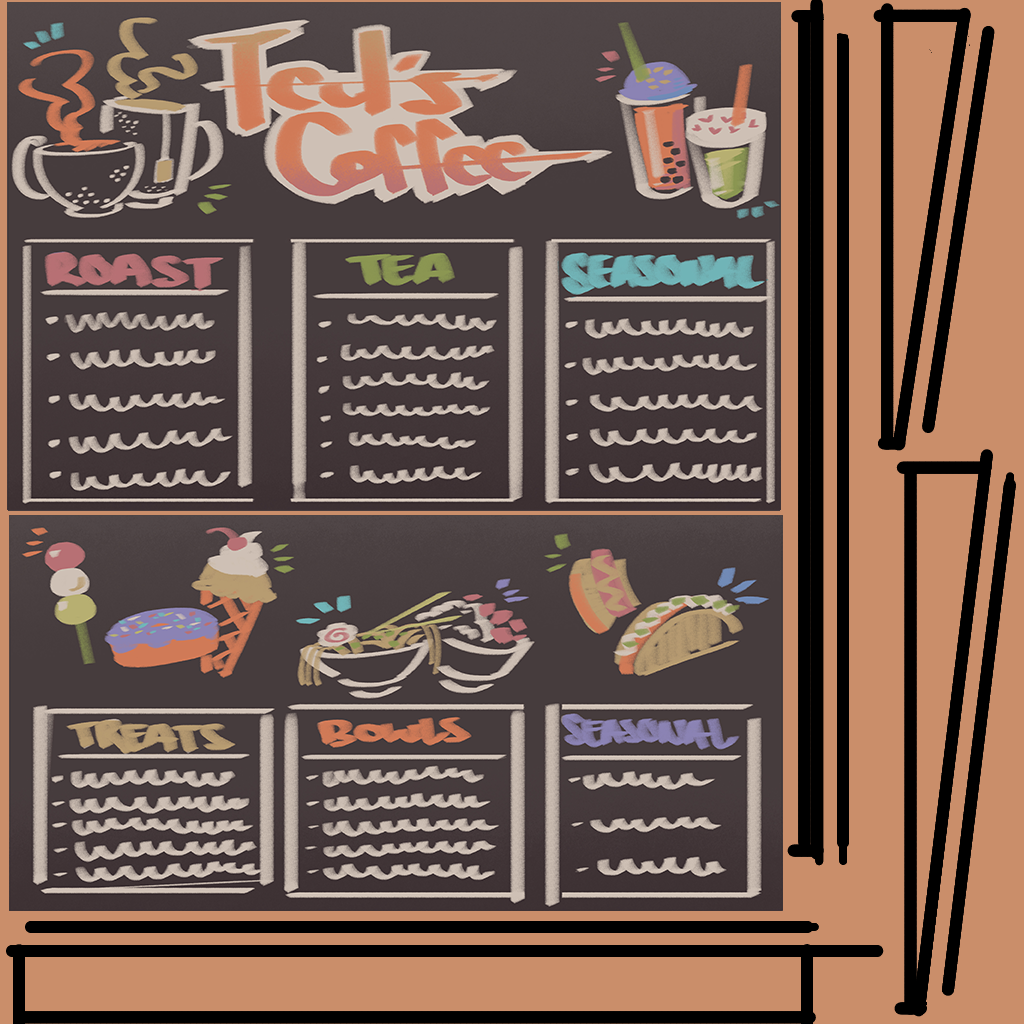 Ted's
Coffee
ROAST
TEA
SEASONAL
TREATS
BOWLS
SEASONAL